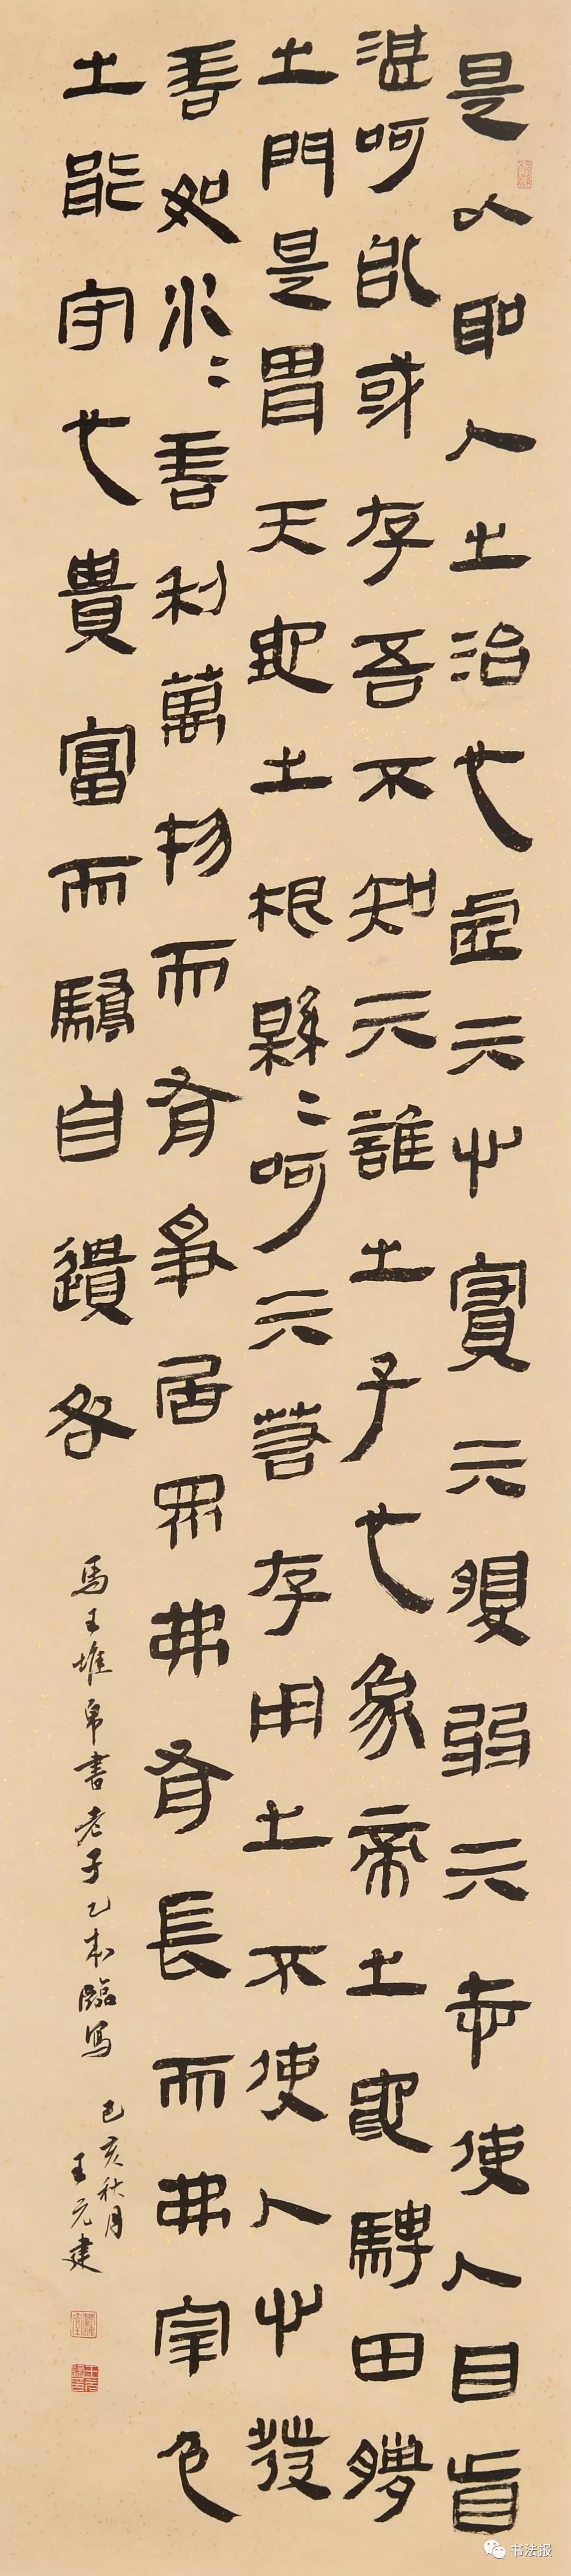 是以聖人之治也虛亓心實亓腹弱亓志使人目盲
湛呵或存吾不知亓誰之子也象帝之騁田臘
之門是胃天地之根縣〻呵亓若存用之不使人心發
善如水〻善利萬物而有爭居眾弗有長而弗宰色
之能守也貴富而驕自遺咎
馬王堆帛書老子乙本臨寫
己亥秋月
王元建
书法报